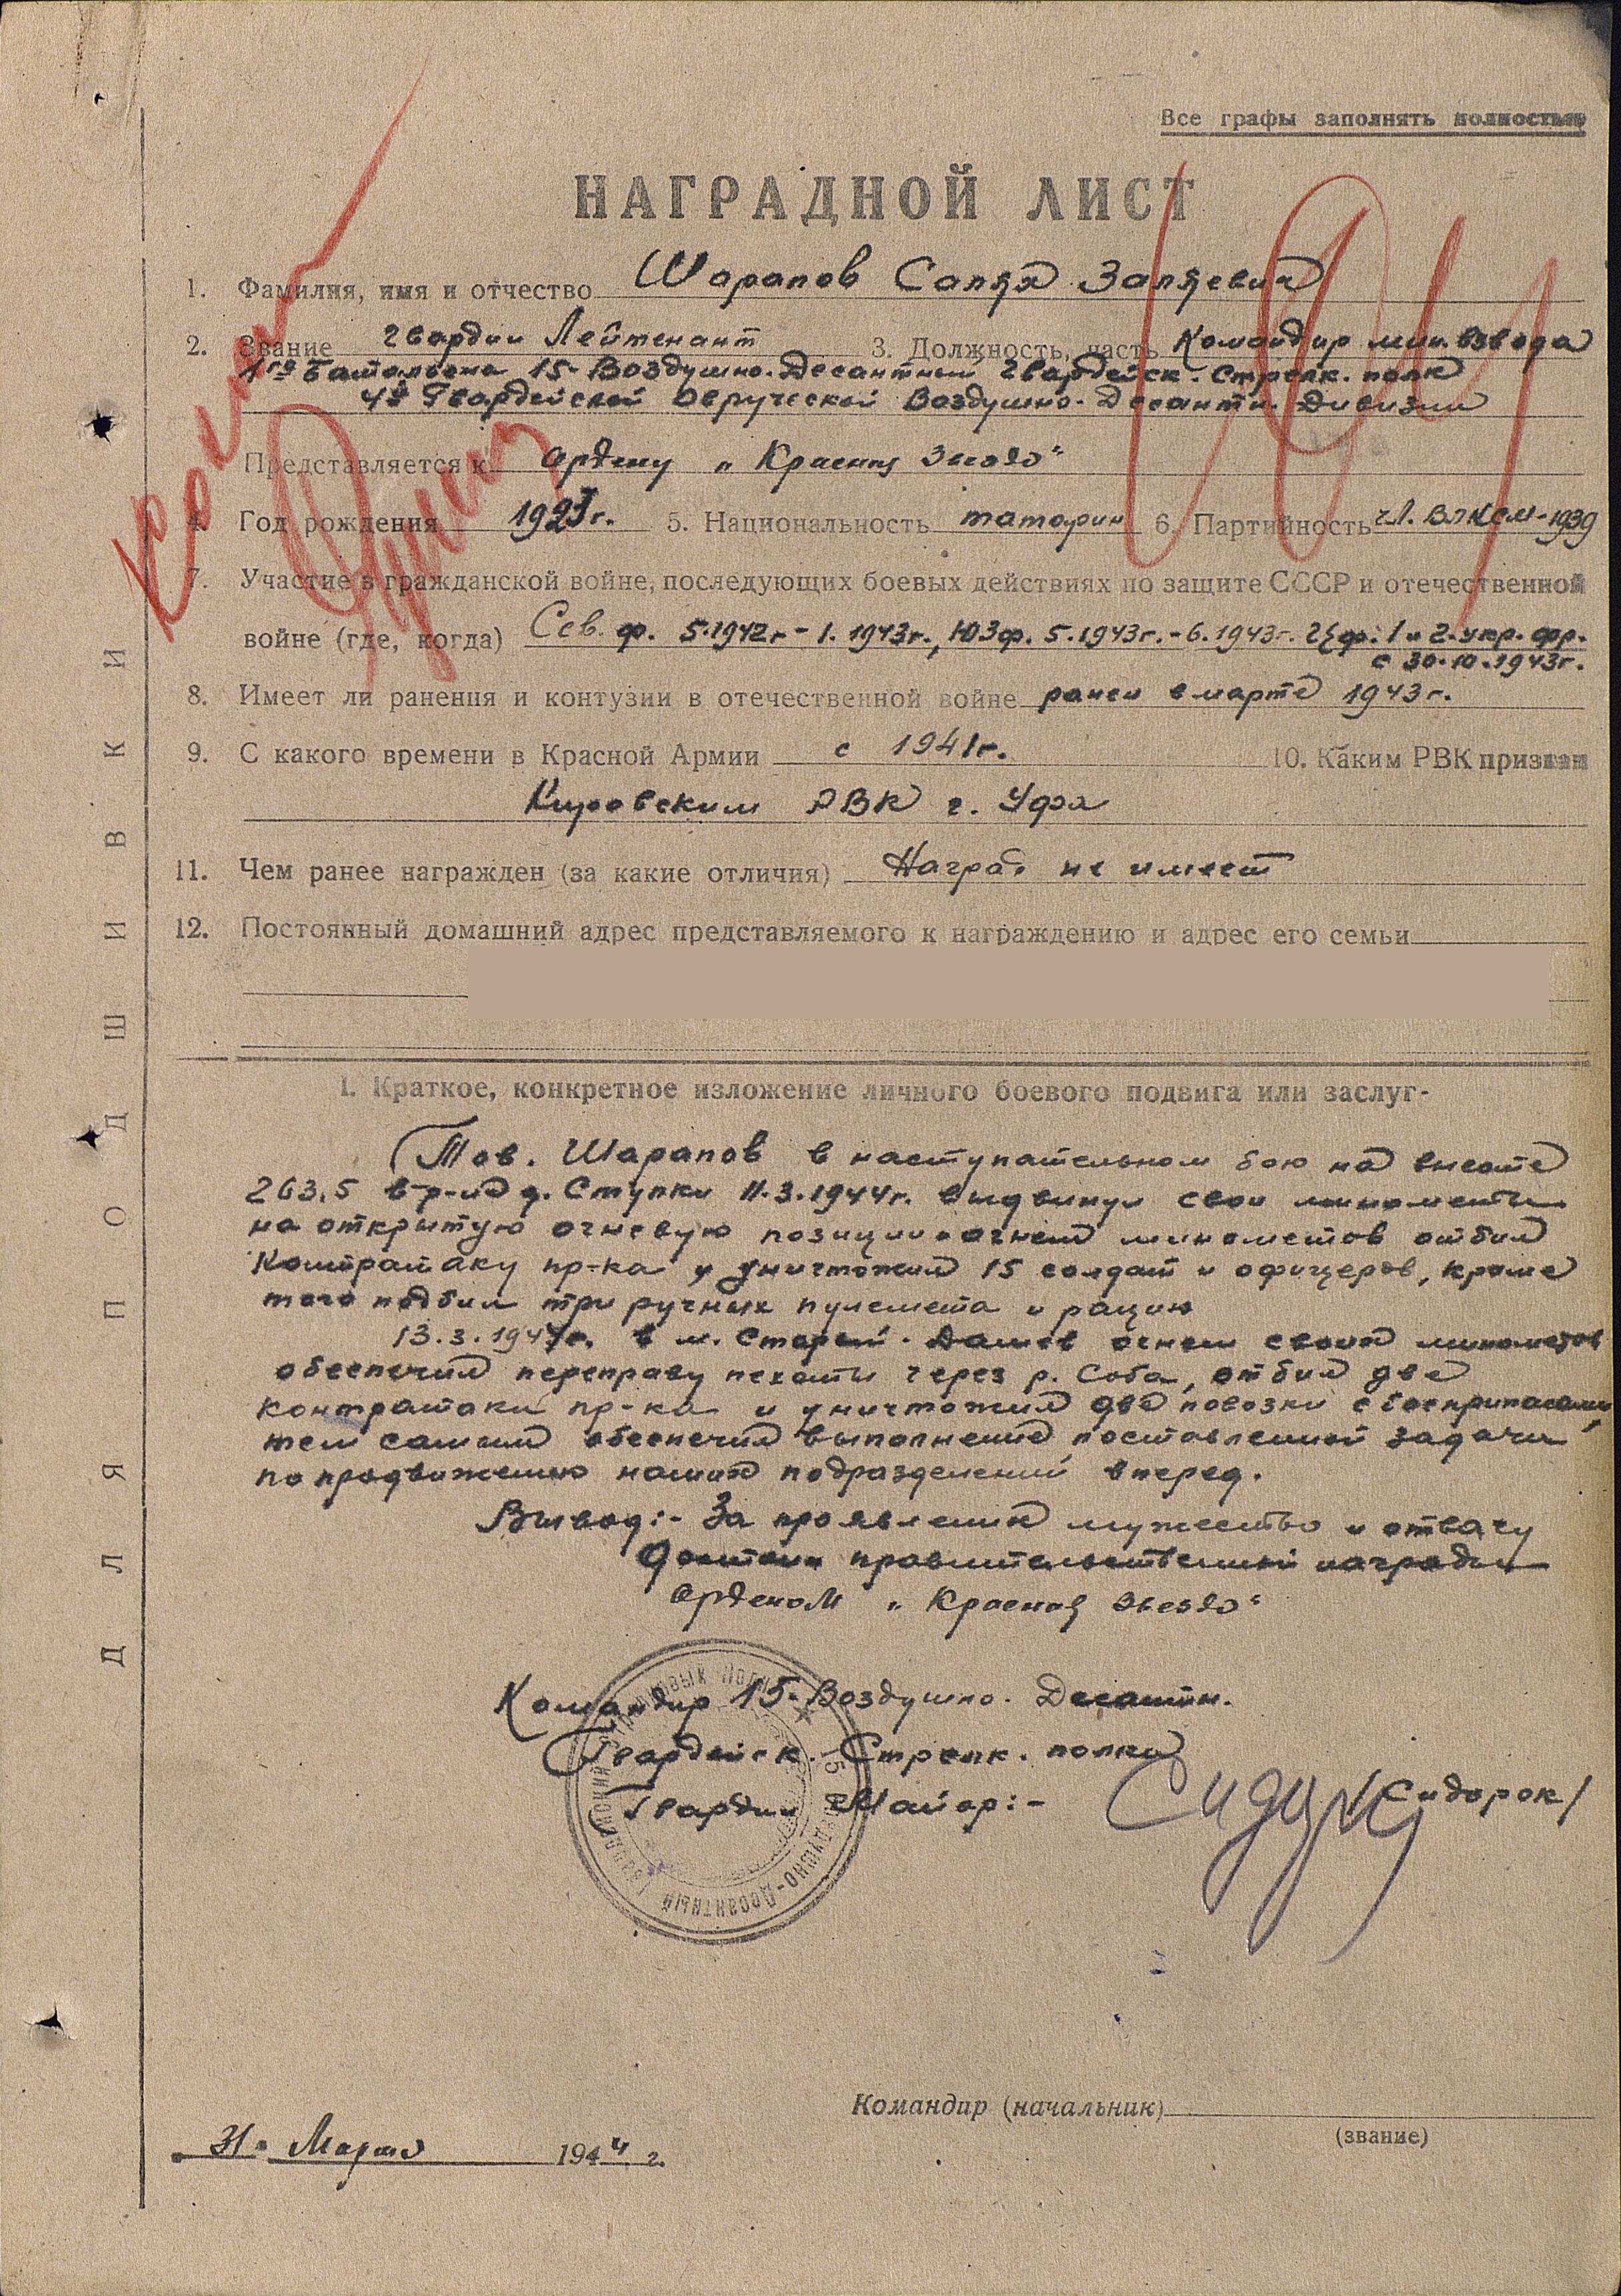 Все графы заполнять полностью
НАГРАДНОЙ ЛИСТ
1. Фамилия, имя и отчество Шарапов
2. Звание гвардии Лейтенант 3. Должность, часть Командир мин. взвода
1го Батальона 15-Воздушно-Десантный Гвардейск. Стрелк. полк
4й Гвардейской Овручской Воздушно-Десантн. Дивизии
Представляется к ордену „Красная Звезда“
4. Год рождения 1923г. 5. Национальность татарин 6. Партийность чл. ВЛКСМ-1939
7. Участие в гражданской войне, последующих боевых действиях по защите СССР и отечественной
войне (где, когда) Сев. ф. 5.1942г - 1.1943г., ЮЗф. 5.1943г. - 6.1943г. 1 и 2. укр. фр.
с 30.10.1943г.
8. Имеет ли ранения и контузии в отечественной войне ранен в марте 1943г.
9. С какого времени в Красной Армии с 1941г. 10. Каким РВК призван
Кировским РВК г. Уфа
11. Чем ранее награжден (за какие отличия) Наград не имеет
12. Постоянный домашний адрес представляемого к награждению и адрес его семьи
I. Краткое, конкретное изложение личного боевого подвига или заслуг-
Тов. Шарапов в наступательном бою на высоте
263,5 в р-не д. Ступки 11.3.1944г. выдвинул свои минометы
на открытую огневую позицию и огнем минометов отбил
Контратаку пр-ка и уничтожил 15 солдат и офицеров, кроме
того подбил три ручных пулемета и рацию
13.3.1944г. в м. Старый-Дашев огнем своих минометов
обеспечил переправу пехоты через р. Соба, отбил две
контратаки пр-ка и уничтожил две повозки с боеприпасами,
тем самым обеспечил выполнение поставленной задачи
по продвижению наших подразделений вперед.
Вывод:- За проявление мужество и отвагу
достоин правительственной награды
орденом „Красная Звезда“
Командир 15-Воздушно-Десантн.
Гвардейск. Стрелк. полка
Гвардии Майор:- /Сидорок/
Командир (начальник)
(звание)
31 Марта 1944 г.
ДЛЯ ПОДШИВКИ